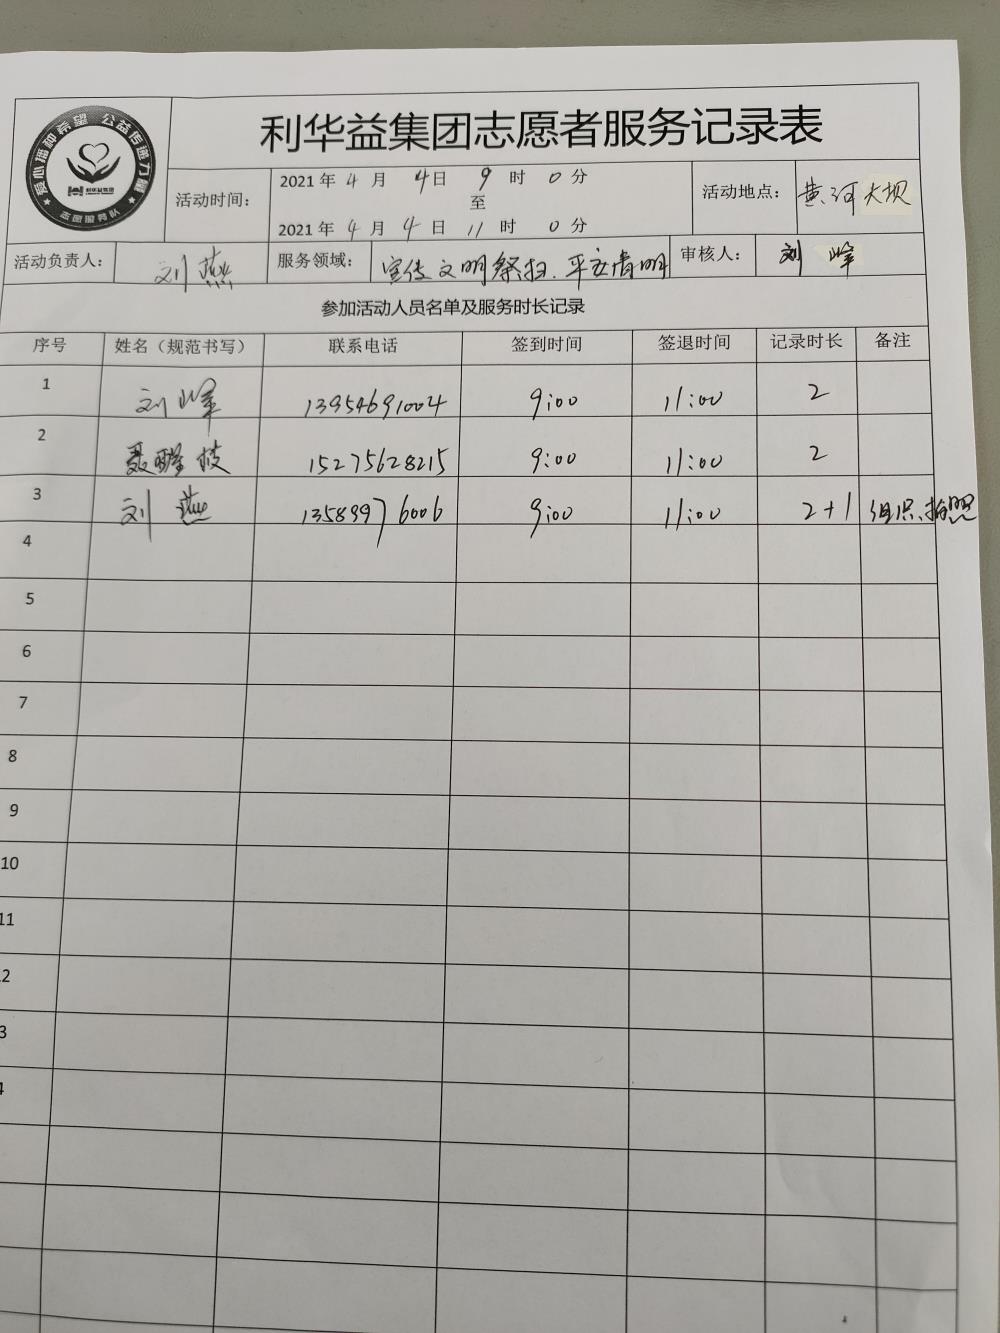 爱心播种希望 公益传递力量
利华益集团
志愿服务队
利华益集团志愿者服务记录表
活动时间: 2021 年 4 月 4 日 9 时 0 分
至
2021 年 4 月 4 日 11 时 0 分
活动地点: 黄河大坝
活动负责人: 刘燕 服务领域: 宣传文明祭扫、平安清明 审核人: 刘峰
参加活动人员名单及服务时长记录
序号 姓名（规范书写） 联系电话 签到时间 签退时间 记录时长 备注
1 刘峰 13954691004 9:00 11:00 2
2 聂 枝 15275628215 9:00 11:00 2
3 刘燕 13589976006 9:00 11:00 2+1 组织、拍照
4
5
6
7
8
9
10
11
2
3
4